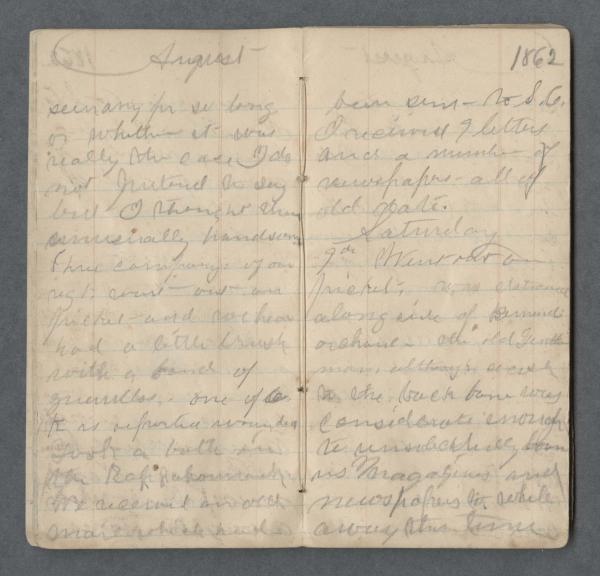 August
scenary for so long
or whether it was
really the case I do
not pretend to say
but I thought them
unusually handsome
Three companys of our
regt went out on
picket and we hear
had a little brush
with a band of
guerillas. one of Co
K is reported wounded
Took a bath in
the Rappahannock
We received an old
mail which had
1862
been sent to S.C.
I received 9 letters
and a number of
newspapers all of
old date.
Saturday
9th Went out on
picket. was stationed
along side of
orchard the old
man, although secesh
to the back bone was
considerate enough
to unsolicitedly loan
us Magazines and
newspapers to while
away the time